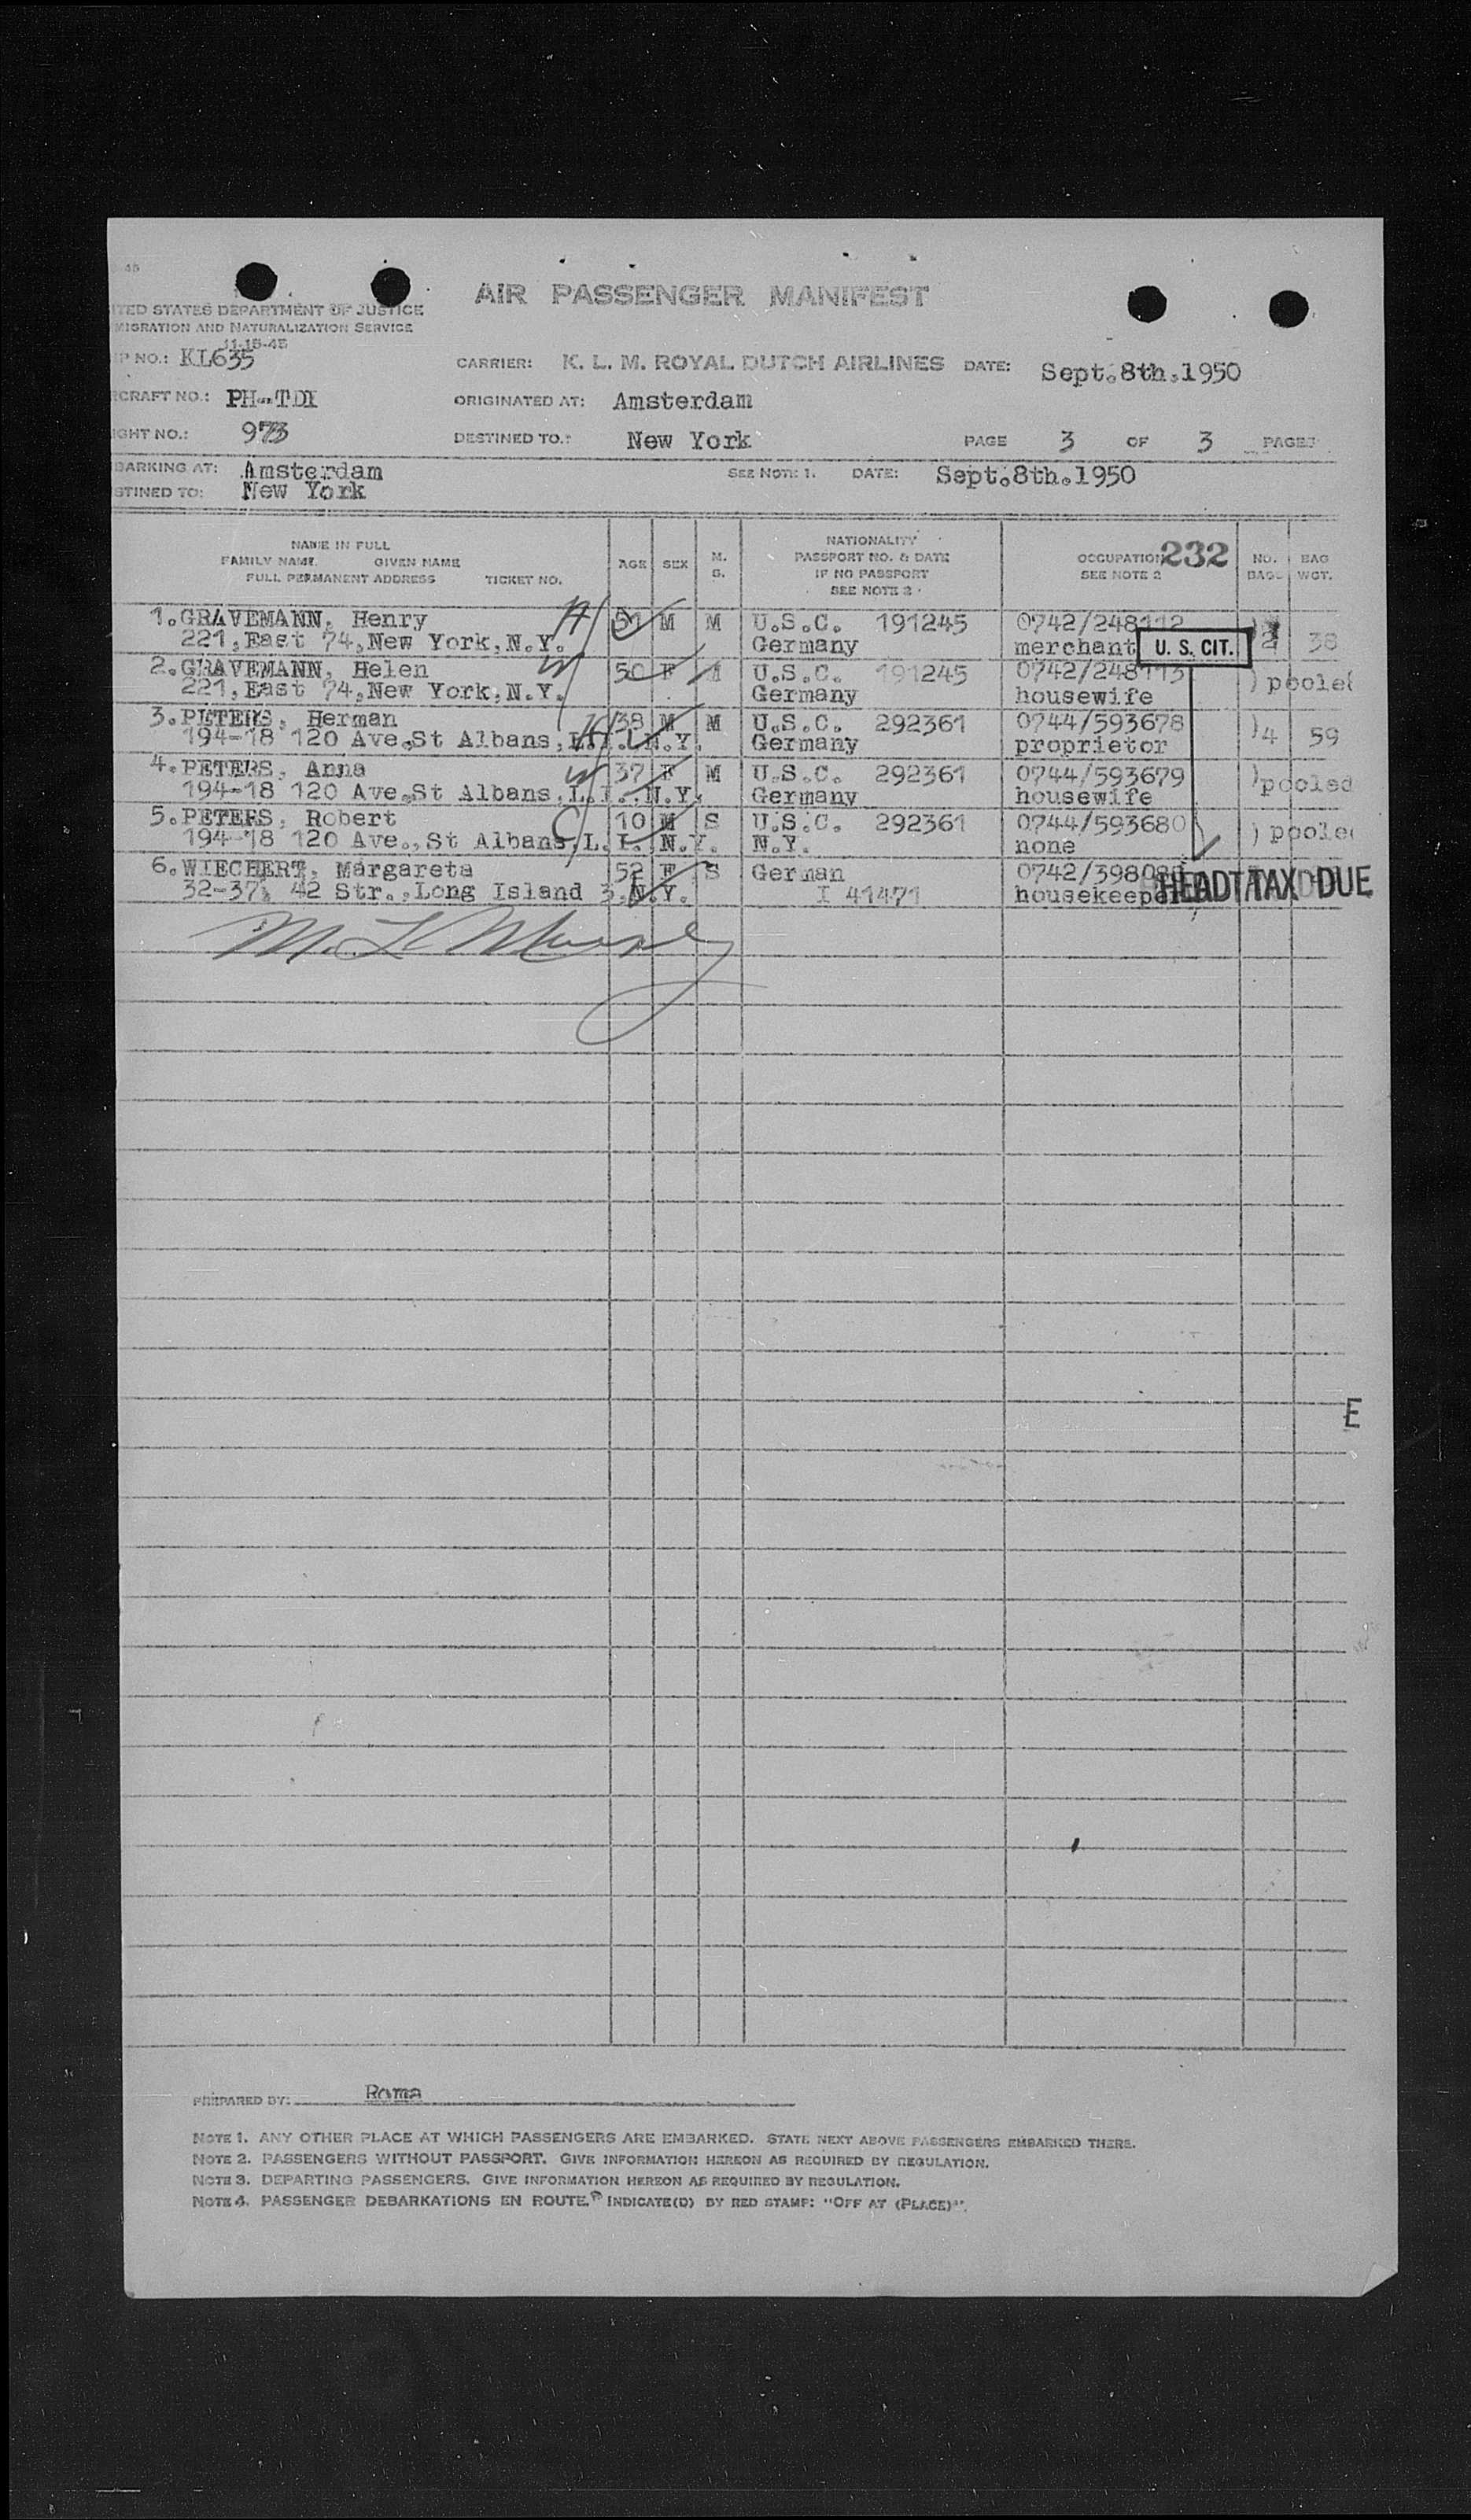 45
AIR PASSENGER MANIFEST
ITED STATES DEPARTMENT OF JUSTICE
MIGRATION AND NATURALIZATION SERVICE
11-15-45
IP NO.: KL635 CARRIER: K. L. M. ROYAL DUTCH AIRLINES DATE: Sept.8th.1950
RCRAFT NO.: PH-TDI ORIGINATED AT: Amsterdam
IGHT NO.: 973 DESTINED TO.: New York PAGE 3 OF 3 PAGES
BARKING AT: Amsterdam SEE NOTE 1. DATE: Sept.8th.1950
STINED TO: New York
NAME IN FULL
FAMILY NAME. GIVEN NAME
FULL PERMANENT ADDRESS TICKET NO.
AGE SEX M. S.
NATIONALITY
PASSPORT NO. & DATE
IF NO PASSPORT
SEE NOTE 2
OCCUPATION 232
SEE NOTE 2
NO. BAGS BAG WGT.
1. GRAVEMANN, Henry H 51 M M U.S.C. 191245 0742/248112 )2 38
221, East 74, New York, N.Y. Germany merchant U. S. CIT.
2. GRAVEMANN, Helen W 50 F M U.S.C. 191245 0742/248113 ) poole
221, East 74, New York, N.Y. Germany housewife
3. PETERS, Herman H 38 M M U.S.C. 292361 0744/593678 )4 59
194-18 120 Ave. St Albans, L.I. N.Y. Germany proprietor
4. PETERS, Anna W 37 F M U.S.C. 292361 0744/593679 )pooled
194-18 120 Ave. St Albans, L.I. N.Y. Germany housewife
5. PETERS, Robert C 10 M S U.S.C. 292361 0744/593680 ) poole
194-18 120 Ave., St Albans, L.I. N.Y. N.Y. none
6. WIECHERT, Margareta 52 F S German
32-37, 42 Str., Long Island 3, N.Y. I 41471 housekeeper HEAD TAX DUE
E
PREPARED BY: Roma
NOTE 1. ANY OTHER PLACE AT WHICH PASSENGERS ARE EMBARKED. STATE NEXT ABOVE PASSENGERS EMBARKED THERE.
NOTE 2. PASSENGERS WITHOUT PASSPORT. GIVE INFORMATION HEREON AS REQUIRED BY REGULATION.
NOTE 3. DEPARTING PASSENGERS. GIVE INFORMATION HEREON AS REQUIRED BY REGULATION.
NOTE 4. PASSENGER DEBARKATIONS EN ROUTE. INDICATE(D) BY RED STAMP: "OFF AT (PLACE)".